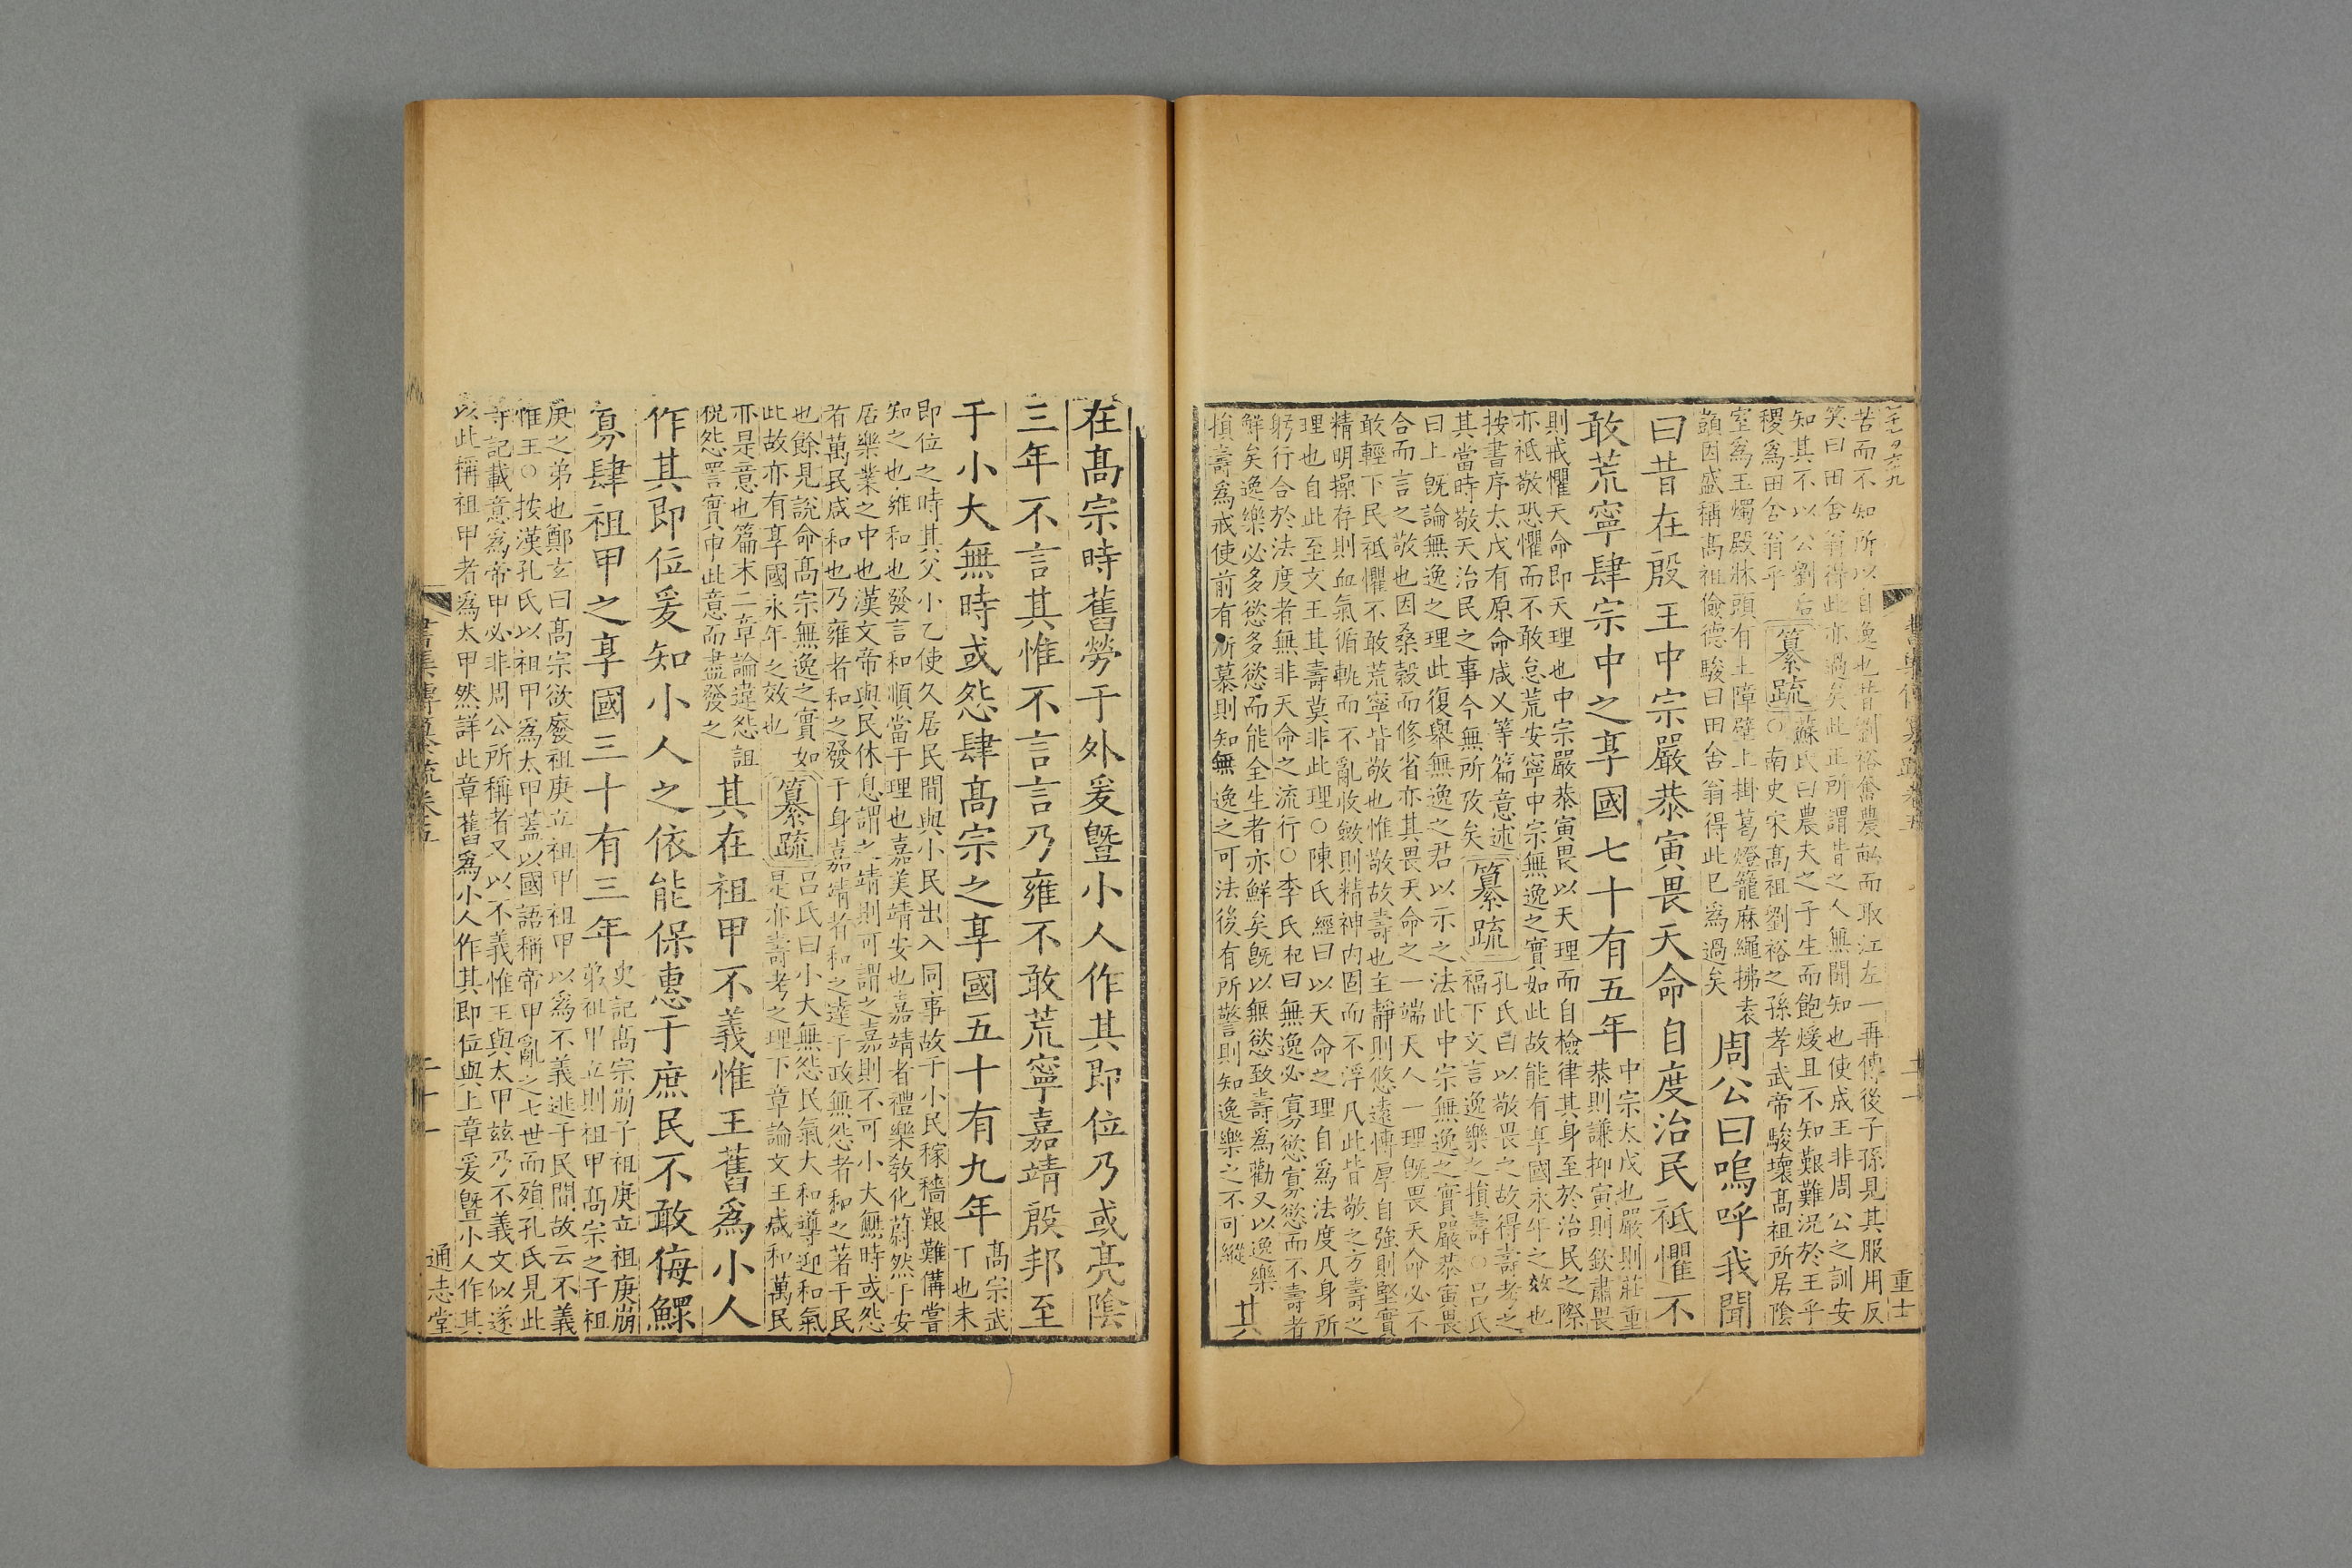 苦而不知所以自逸也昔劉裕奮農畝而取江左一再傳後子孫見其服用反
笑曰田舍翁得此亦過矣此正所謂昔之人無聞知也使成王非周公之訓安
知其不以公劉后
稷爲田舍翁乎
纂疏
蘇氏曰農夫之子生而飽煖且不知艱難況於王乎
○南史宋髙祖劉裕之孫孝武帝駿壞髙祖所居陰
室爲玉燭殿牀頭有土障壁上掛葛燈籠麻繩拂袁
顗因盛稱髙祖儉德駿曰田舍翁得此已爲過矣
周公曰嗚呼我聞
曰昔在殷王中宗嚴恭寅畏天命自度治民祗懼不
敢荒寧肆宗中之享國七十有五年
中宗太戊也嚴則莊重
恭則謙抑寅則欽肅畏
則戒懼天命即天理也中宗嚴恭寅畏以天理而自檢律其身至於治民之際
亦祗敬恐懼而不敢怠荒安寧中宗無逸之實如此故能有享國永年之效也
按書序太戊有原命咸乂等篇意述
其當時敬天治民之事今無所攷矣
纂疏
孔氏曰以敬畏之故得壽考之
福下文言逸樂之損壽○呂氏
曰上旣論無逸之理此復舉無逸之君以示之法此中宗無逸之實嚴恭寅畏
合而言之敬也因桑榖而修省亦其畏天命之一端天人一理旣畏天命必不
敢輕下民祗懼不敢荒寧皆敬也惟敬故壽也主靜則悠遠博厚自強則堅實
精明操存則血氣循軌而不亂收斂則精神内固而不浮凡此皆敬之方壽之
理也自此至文王其壽莫非此理○陳氏經曰以天命之理自爲法度凡身所
躬行合於法度者無非天命之流行○李氏杞曰無逸必寡慾寡慾而不壽者
鮮矣逸樂必多慾多慾而能全生者亦鮮矣旣以無慾致壽爲勸又以逸樂
損壽爲戒使前有所慕則知無逸之可法後有所警則知逸樂之不可縱
其
在髙宗時舊勞于外爰曁小人作其即位乃或亮隂
三年不言其惟不言言乃雍不敢荒寧嘉靖殷邦至
于小大無時或怨肆髙宗之享國五十有九年
髙宗武
丁也未
即位之時其父小乙使久居民間與小民出入同事故于小民稼穡艱難備嘗
知之也雍和也發言和順當于理也嘉美靖安也嘉靖者禮樂敎化蔚然于安
居樂業之中也漢文帝與民休息謂之靖則可謂之嘉則不可小大無時或怨
者萬民咸和也乃雍者和之發于身嘉靖者和之達于政無怨者和之著于民
也餘見說命髙宗無逸之實如
此故亦有享國永年之效也
纂疏
呂氏曰小大無怨民氣大和導迎和氣
是亦壽考之理下章論文王咸和萬民
亦是意也篇末二章論違怨詛
祝怨詈實申此意而盡發之
其在祖甲不義惟王舊爲小人
作其即位爰知小人之依能保惠于庶民不敢侮鰥
寡肆祖甲之享國三十有三年
史記髙宗崩子祖庚立祖庚崩
弟祖甲立則祖甲髙宗之子祖
庚之弟也鄭玄曰髙宗欲廢祖庚立祖甲祖甲以爲不義逃于民間故云不義
惟王○按漢孔氏以祖甲爲太甲蓋以國語稱帝甲亂之七世而殞孔氏見此
等記載意爲帝甲必非周公所稱者又以不義惟王與太甲兹乃不義文似遂
以此稱祖甲者爲太甲然詳此章舊爲小人作其即位與上章爰曁小人作其
書集傳纂疏卷五
二十一
通志堂